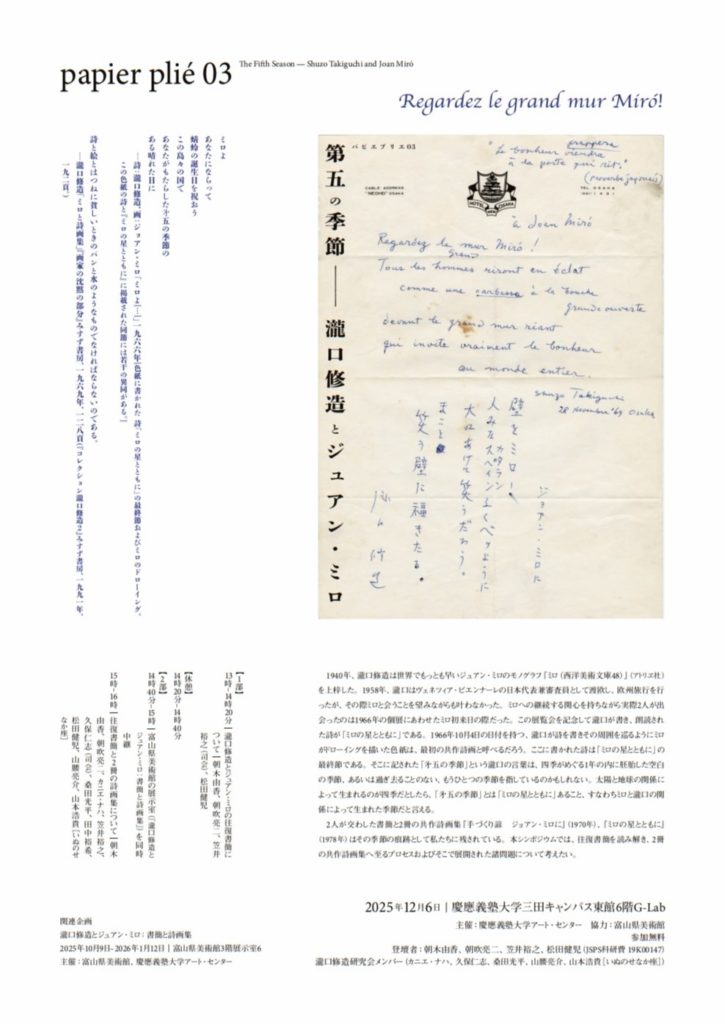 papier plié 03
The Fifth Season — Shuzo Takiguchi and Joan Miró
Regardez le grand mur Miró!
ミロよ
あなたにならって
蜻蛉の誕生日を祝おう
この島々の国で
あなたがもたらした第五の季節の
ある晴れた日に
―詩：瀧口修造、画：ジョアン・ミロ「ミロよ[…]」一九六六年[色紙に書かれた詩、「ミロの星とともに」の最終節およびミロのドローイング。
この色紙の詩と『ミロの星とともに』に掲載された同節には若干の異同がある。]
詩と絵とはつねに貧しいときのパンと水のようなものでなければならないのである。
―瀧口修造「ミロと詩画集」『画家の沈黙の部分』みすず書房、一九六九年、一二八頁（『コレクション瀧口修造2』みすず書房、一九九一年、
一九二頁。）
パピエプリエ03
第五の季節――瀧口修造とジュアン・ミロ
"Le bonheur viendra
frappera
à la porte qui rit."
(proverbe japonais)
CABLE ADDRESS
TEL. OSAKA
HOTEL OSAKA
à Joan Miró
Regardez le mur Miró !
grand
Tous les hommes riront en éclat
comme une à la bouche
grande ouverte
devant le grand mur riant
qui invite vraiment le bonheur
au monde entier.
Shuzo Takiguchi
28 Novembre '69 Osaka
ジョアン・ミロに
壁をミロー
人みな
カタラン
スペイン
大口あけて笑うだろう。
まこと
笑う壁に福きたる。
瀧口修造
【1部】
13時-14時20分｜瀧口修造とジュアン・ミロの往復書簡に
ついて｜朝木由香、朝吹亮二、笠井
裕之（司会）、松田健児
【休憩】
14時20分-14時40分
【2部】
14時40分-15時｜富山県美術館の展示室（「瀧口修造と
ジュアン・ミロ：書簡と詩画集」）を同時
中継
15時-16時｜往復書簡と2冊の詩画集について｜朝木
由香、朝吹亮二、カニエ・ナハ、笠井裕之、
久保仁志（司会）、桑田光平、田中裕希、
松田健児、山腰亮介、山本浩貴［いぬのせ
なか座］）
1940年、瀧口修造は世界でもっとも早いジュアン・ミロのモノグラフ『ミロ（西洋美術文庫48）』（アトリエ社）
を上梓した。1958年、瀧口はヴェネツィア・ビエンナーレの日本代表兼審査員として渡欧し、欧州旅行を行
ったが、その際ミロと会うことを望みながらも叶わなかった。ミロへの継続する関心を持ちながら実際2人が出
会ったのは1966年の個展にあわせたミロ初来日の際だった。この展覧会を記念して瀧口が書き、朗読され
た詩が「ミロの星とともに」である。1966年10月4日の日付を持つ、瀧口が詩を書きその周囲を巡るようにミロ
がドローイングを描いた色紙は、最初の共作詩画と呼べるだろう。ここに書かれた詩は「ミロの星とともに」の
最終節である。そこに記された「第五の季節」という瀧口の言葉は、四季がめぐる1年の内に胚胎した空白
の季節、あるいは過ぎ去ることのない、もうひとつの季節を指しているのかもしれない。太陽と地球の関係に
よって生まれるのが四季だとしたら、「第五の季節」とは「ミロの星とともに」あること、すなわちミロと瀧口の関
係によって生まれた季節だと言える。
2人が交わした書簡と2冊の共作詩画集『手づくり諺　ジョアン・ミロに』（1970年）、『ミロの星とともに』
（1978年）はその季節の痕跡として私たちに残されている。本シンポジウムでは、往復書簡を読み解き、2冊
の共作詩画集へ至るプロセスおよびそこで展開された諸問題について考えたい。
2025年12月6日｜慶應義塾大学三田キャンパス東館6階G-Lab
主催：慶應義塾大学アート・センター　協力：富山県美術館
参加無料
登壇者：朝木由香、朝吹亮二、笠井裕之、松田健児（JSPS科研費 19K00147）
瀧口修造研究会メンバー（カニエ・ナハ、久保仁志、桑田光平、山腰亮介、山本浩貴［いぬのせなか座］）
関連企画
瀧口修造とジュアン・ミロ：書簡と詩画集
2025年10月9日-2026年1月12日｜富山県美術館3階展示室6
主催：富山県美術館、慶應義塾大学アート・センター